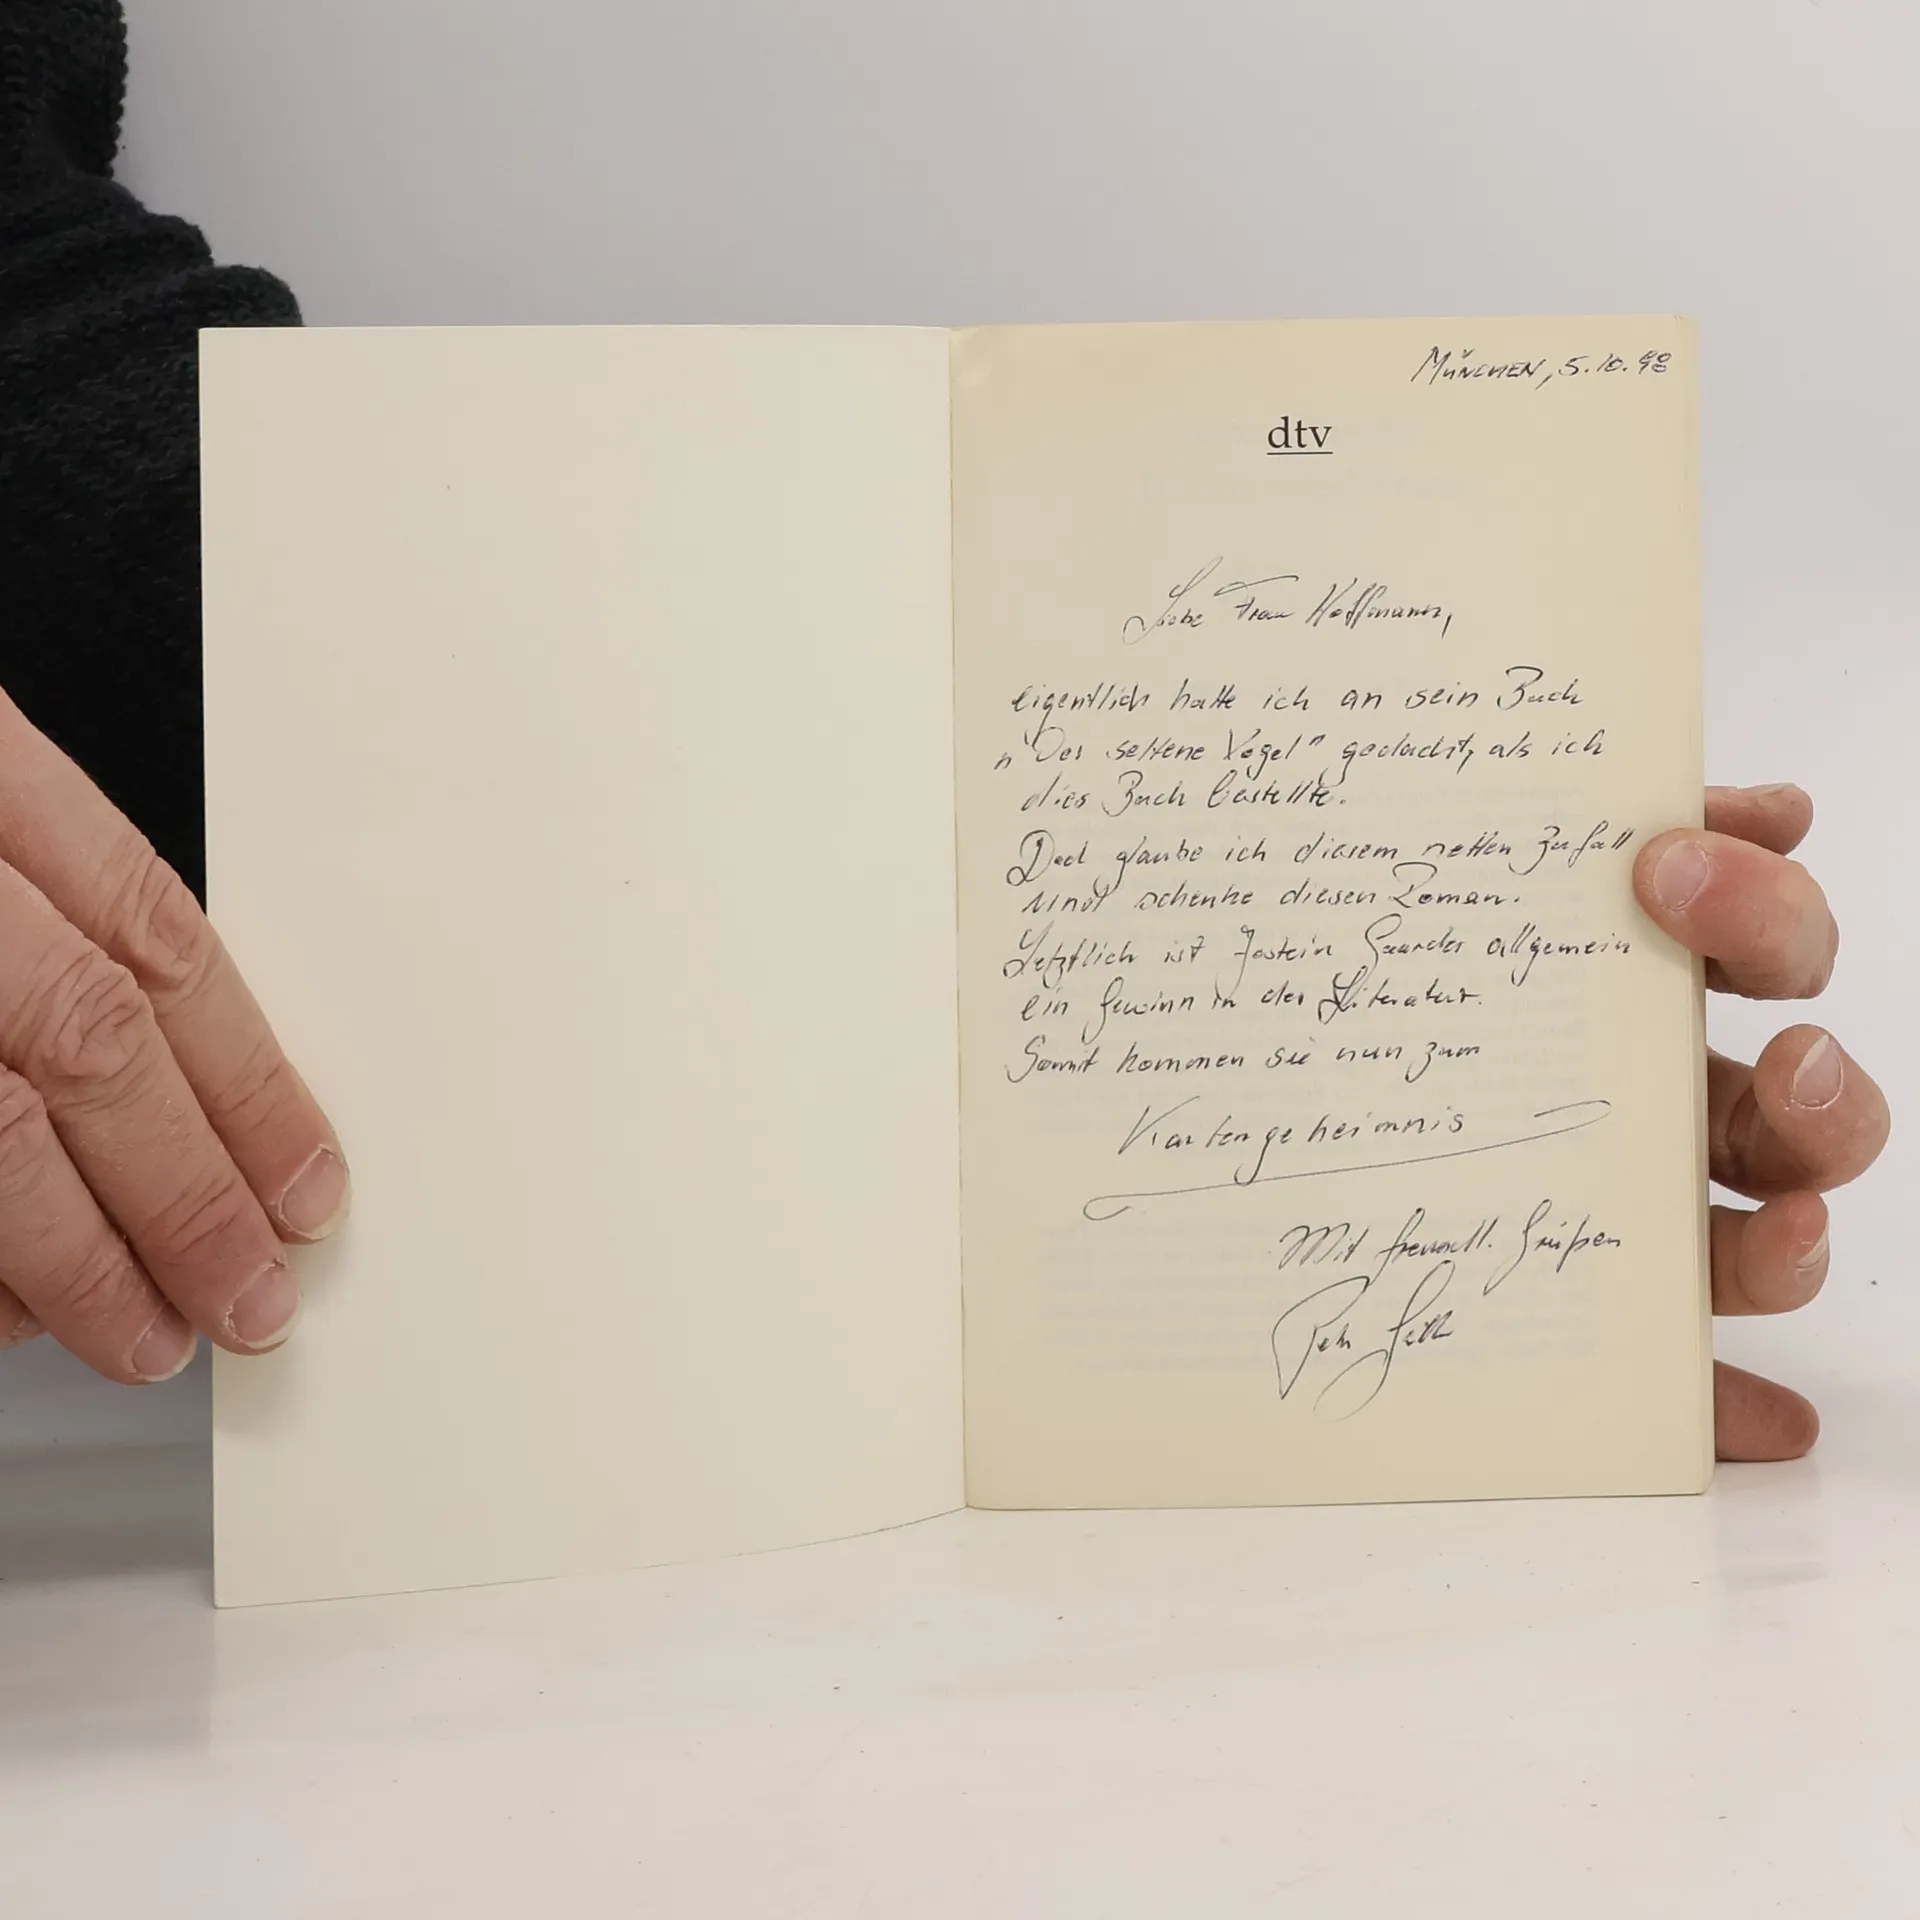 München, 5.10.98
dtv
Liebe Frau Hoffmann,
eigentlich hatte ich an sein Buch
"Der seltene Vogel" gedacht, als ich
dies Buch bestellte.
glaube ich diesem netten Zufall
und schenke diesen Roman.
Letztlich ist Jostein Gaarder allgemein
ein Gewinn in der Literatur.
Somit kommen sie nun zum
Kartengeheimnis
Mit freundl. Grüßen